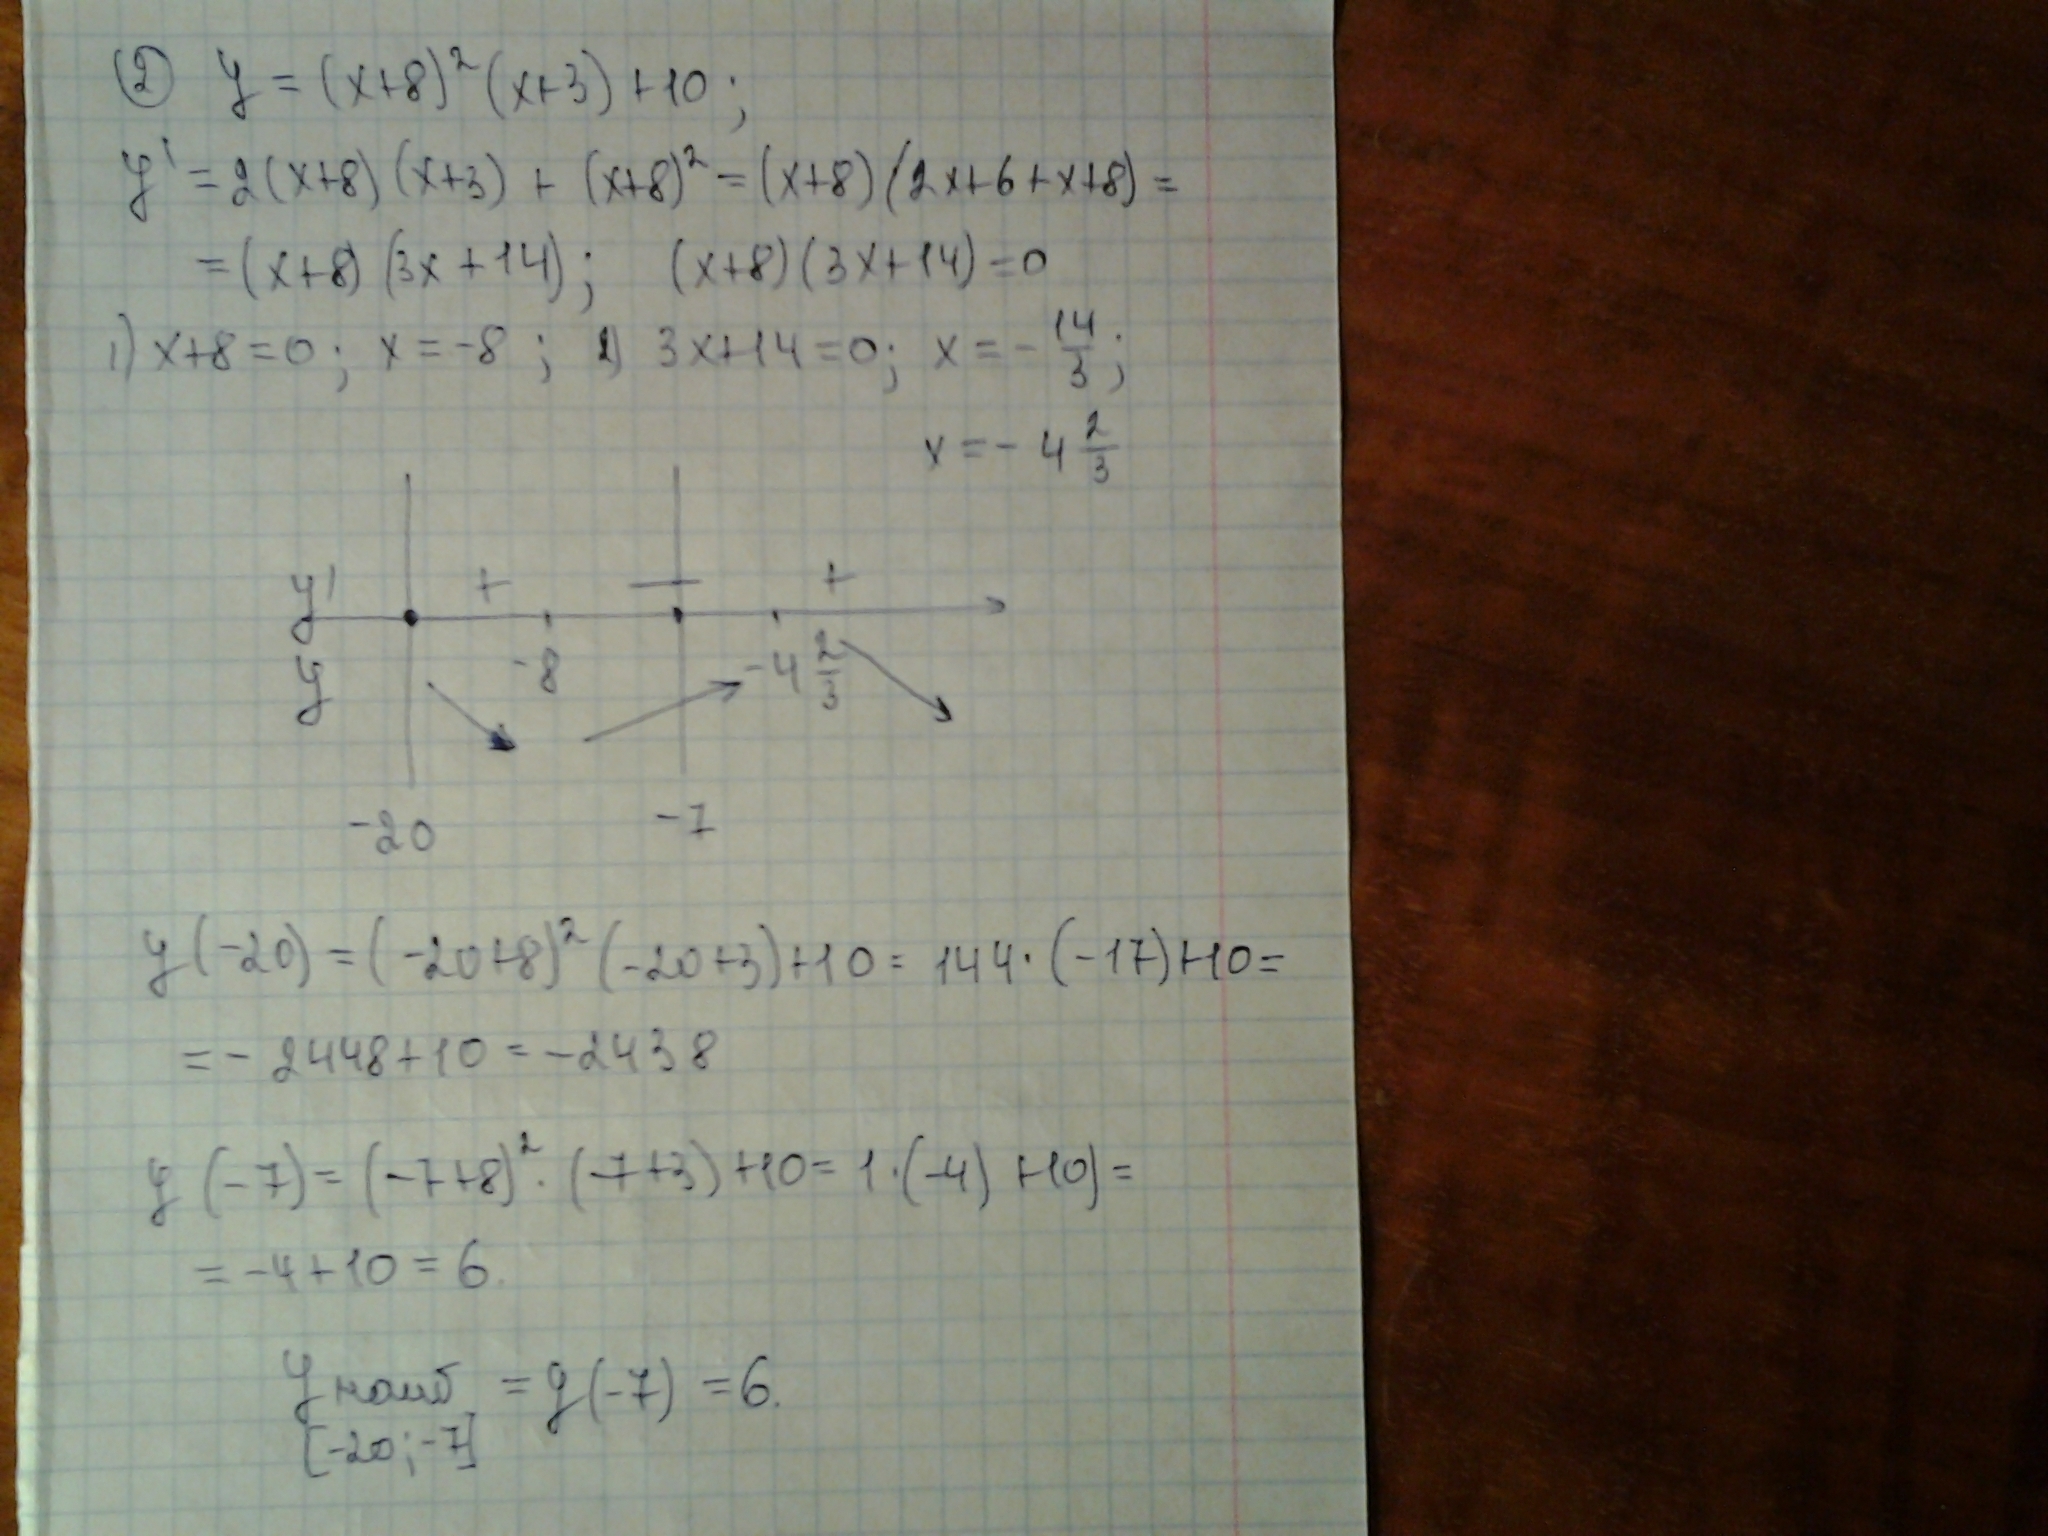 ② y = (x+8)²(x+3)+10;
y' = 2(x+8)(x+3) + (x+8)² = (x+8)(2x+6+x+8) =
= (x+8)(3x+14); (x+8)(3x+14)=0
1) x+8=0; x=-8; 2) 3x+14=0; x=-14/3;
x=-4 2/3
y' + — +
y -8 -4 2/3
-20 -7
y(-20) = (-20+8)²(-20+3)+10 = 144·(-17)+10 =
= -2448+10 = -2438
y(-7) = (-7+8)²·(-7+3)+10 = 1·(-4)+10) =
= -4+10 = 6.
y наиб = y(-7) = 6.
[-20;-7]